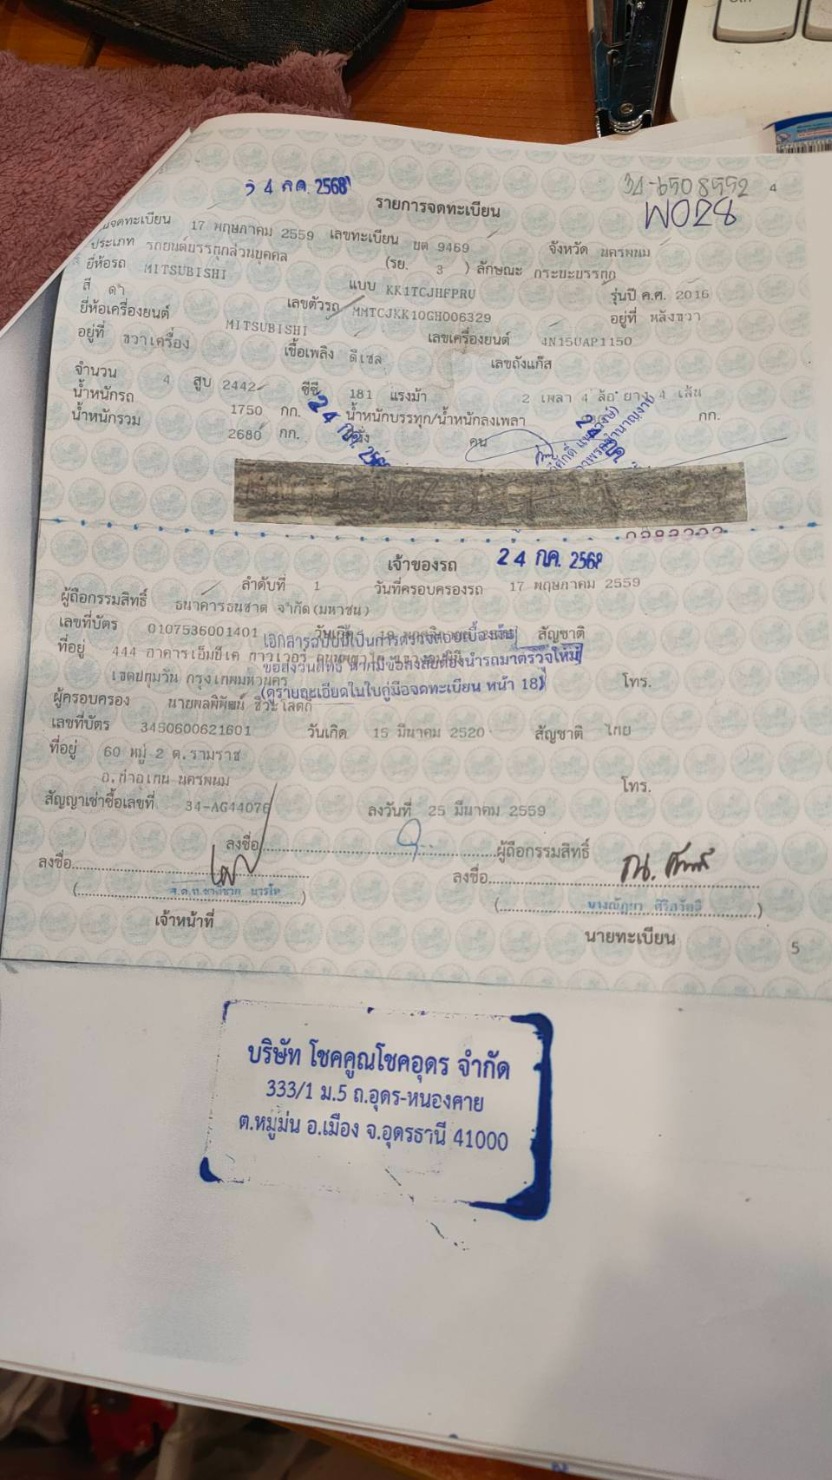 24 ก.ค. 2568
34-6508552 4
รายการจดทะเบียน
W028
วันจดทะเบียน 17 พฤษภาคม 2559 เลขทะเบียน บต 9469 จังหวัด นครพนม
ประเภท รถยนต์บรรทุกส่วนบุคคล (รย. 3 ) ลักษณะ กระบะบรรทุก
ยี่ห้อรถ MITSUBISHI แบบ KK1TCJHFPRU รุ่นปี ค.ศ. 2016
สี ดำ เลขตัวรถ MMTCJKK10GH006329 อยู่ที่ หลังขวา
ยี่ห้อเครื่องยนต์ MITSUBISHI เลขเครื่องยนต์ 4N15UAP1150
อยู่ที่ ขวาเครื่อง เชื้อเพลิง ดีเซล เลขถังแก๊ส
จำนวน 4 สูบ 2442 ซีซี 181 แรงม้า 2 เพลา 4 ล้อ ยาง 4 เส้น
น้ำหนักรถ 1750 กก. น้ำหนักบรรทุก/น้ำหนักลงเพลา กก.
น้ำหนักรวม 2680 กก. ที่นั่ง คน
24 ก.ค.
24 ก.ค.
เจ้าของรถ 24 ก.ค. 2568
ลำดับที่ 1 วันที่ครอบครองรถ 17 พฤษภาคม 2559
ผู้ถือกรรมสิทธิ์ ธนาคารธนชาต จำกัด(มหาชน)
เลขที่บัตร 0107536001401 สัญชาติ
เอกสารฉบับนี้เป็นการตรวจสอบเบื้องต้น
ที่อยู่ 444 อาคารเอ็มบีเค ทาวเวอร์
ขอสงวนสิทธิ์ หากมีข้อสงสัยต้องนำรถมาตรวจใหม่
เขตปทุมวัน กรุงเทพมหานคร โทร.
(ดูรายละเอียดในใบคู่มือจดทะเบียน หน้า 18)
ผู้ครอบครอง นายพลพิพัฒน์
เลขที่บัตร 3450600621601 วันเกิด 15 มีนาคม 2520 สัญชาติ ไทย
ที่อยู่ 60 หมู่ 2 ต.รามราช
อ.ท่าอุเทน นครพนม โทร.
สัญญาเช่าซื้อเลขที่ 34-AG44076 ลงวันที่ 25 มีนาคม 2559
ลงชื่อ ผู้ถือกรรมสิทธิ์
ลงชื่อ ลงชื่อ
เจ้าหน้าที่ นายทะเบียน
5
บริษัท โชคคูณโชคอุดร จำกัด
333/1 ม.5 ถ.อุดร-หนองคาย
ต.หมูม่น อ.เมือง จ.อุดรธานี 41000